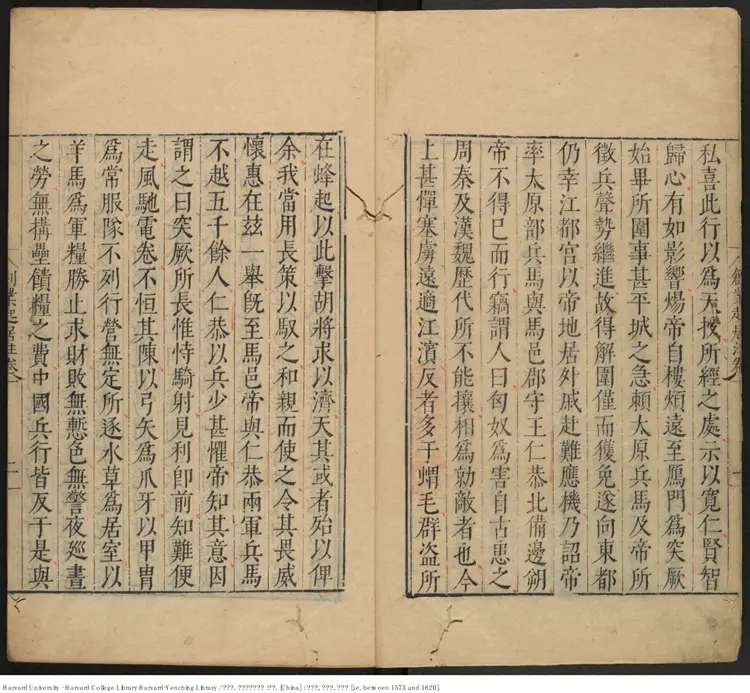 私喜此行以爲天授所經之處示以寛仁賢智
歸心有如影響煬帝自樓煩遠至鴈門爲突厥
始畢所圍事甚平城之急頼太原兵馬及帝所
徵兵聲勢繼進故得解圍僅而獲免遂向東都
仍幸江都宮以帝地居外戚赴難應機乃詔帝
率太原部兵馬與馬邑郡守王仁恭北備邊朔
帝不得已而行竊謂人曰匈奴爲害自古患之
周秦及漢魏歷代所不能攘相爲勍敵者也今
上甚憚塞虜遠適江濱反者多于蝟毛群盗所
在蜂起以此擊胡將求以濟天其或者殆以俾
余我當用長策以馭之和親而使之令其畏威
懷惠在兹一舉旣至馬邑帝與仁恭兩軍兵馬
不越五千餘人仁恭以兵少甚懼帝知其意因
謂之曰突厥所長惟恃騎射見利卽前知難便
走風馳電卷不恒其陳以弓矢爲爪牙以甲冑
爲常服隊不列行營無定所逐水草爲居室以
羊馬爲軍糧勝止求財敗無慙色無警夜廵晝
之勞無搆壘饋糧之費中國兵行皆反于是與
創業起居注卷一
二
Harvard University - Harvard College Library Harvard-Yenching Library / ???. ??????? :??. [China] : ???, ???, ??? [i.e. between 1573 and 1620].